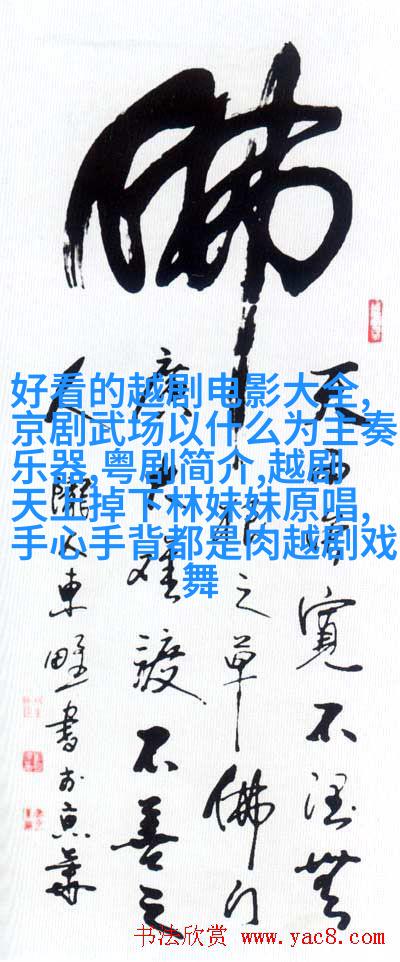 佛
天雨雖寬不潤無
根之草佛门
廣大難渡不善之
人隴人東野書於京華
好看的越剧电影大全,
京剧武场以什么为主奏
乐器,粤剧简介,越剧
天上掉下林妹妹原唱,
手心手背都是肉越剧戏
舞
书法欣赏 www.yac8.com